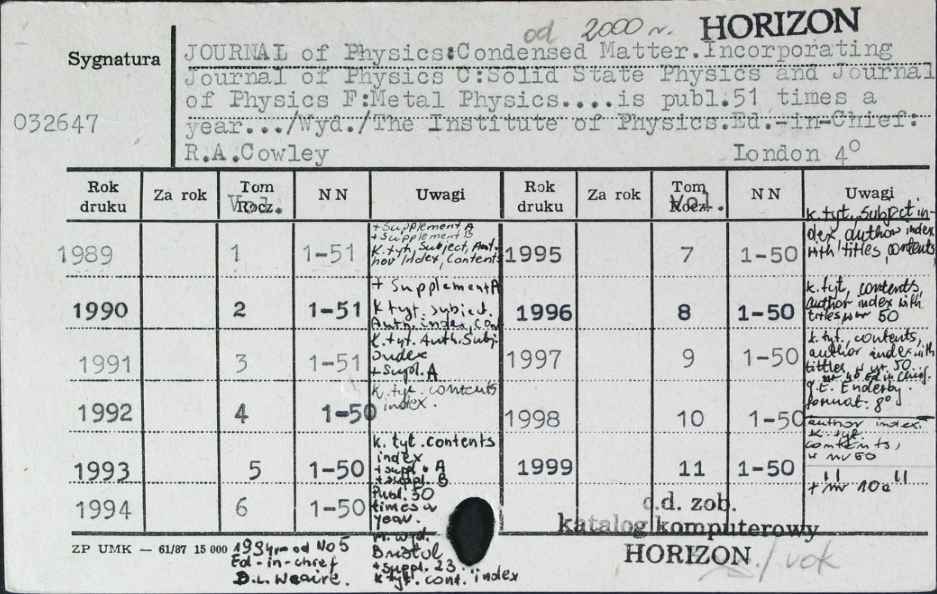 od 2000 r. HORIZON
Sygnatura
032647
JOURNAL of Physics:Condensed Matter.Incorporating
Journal of Physics C:Solid State Physics and Journal
of Physics F:Metal Physics....is publ.51 times a
year.../Wyd./The Institute of Physics.Ed.-in-Chief:
R.A.Cowley London 4°
Rok druku Za rok Tom Rocz. Vol. NN Uwagi Rok druku Za rok Tom Rocz. Vol. NN Uwagi
1989 1 1-51 + Supplement A + Supplement B k.tyt, Subject, Author Index, contents
1995 7 1-50 k.tyt, subject index, author index with titles, contents
1990 2 1-51 + Supplement A k.tyt. subject. Auth. index, con
1996 8 1-50 k.tyt, contents, author index with titles w nr 50
1991 3 1-51 k.tyt. Auth. Subj. Index + Supl. A
1997 9 1-50 k.tyt, contents, author index with titles, w nr. 50. Ed in Chief. Enderby. format: 8°
1992 4 1-50 k.tyt. contents index.
1998 10 1-50 author index. k.tyt. contents, w nr 50
1993 5 1-50 k.tyt. contents index + suppl. A + suppl. B Publ. 50 times a year.
1999 11 1-50 + nr 10a"
1994 6 1-50 M. wyd. Bristol + suppl. 23. k.tyt. cont. index
c.d. zob.
katalog komputerowy
HORIZON
ZP UMK — 61/87 15 000
1994 r. od No 5
Ed-in-chief
D.L. Weaire.